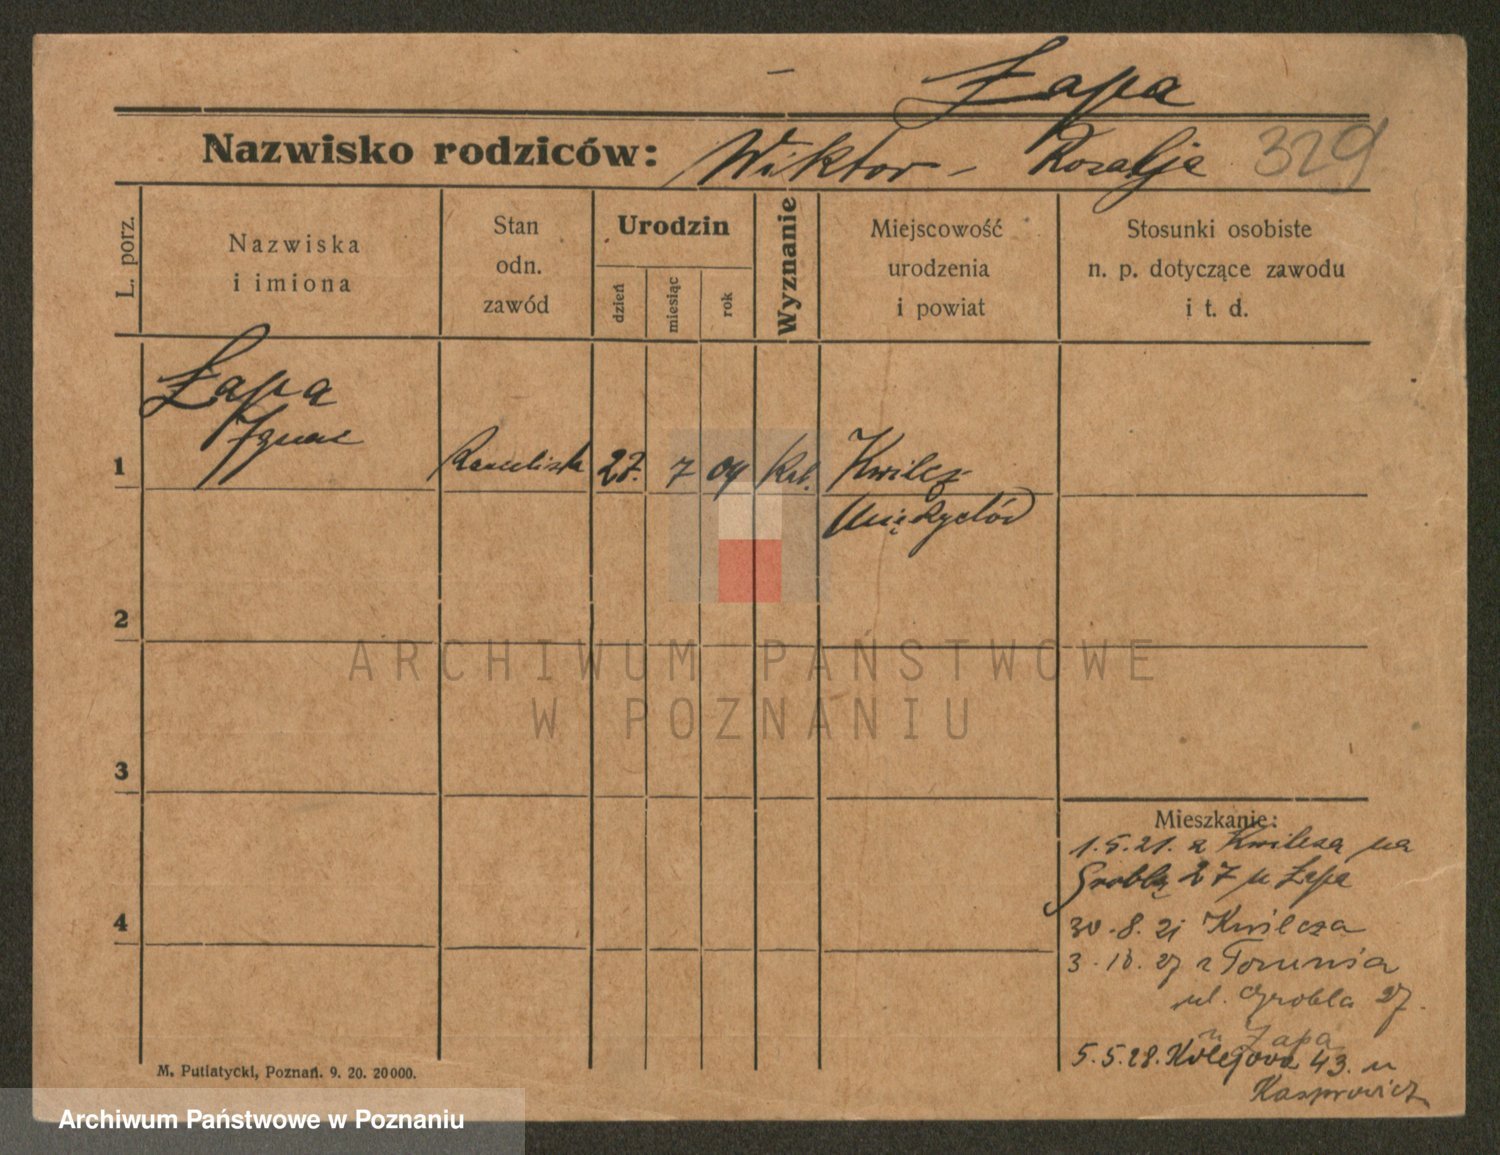 Łapa
Nazwisko rodziców: Wiktor - Rozalja 329
L. porz.
Nazwiska
i imiona
Stan
odn.
zawód
Urodzin
dzień
miesiąc
rok
Wyznanie
Miejscowość
urodzenia
i powiat
Stosunki osobiste
n. p. dotyczące zawodu
i t. d.
Łapa
Ignac
1 27. 7 04 kat. Kwilcz
Międzychód
2
ARCHIWUM PAŃSTWOWE
W POZNANIU
3
Mieszkanie:
1.5.21. z Kwilcza na
Groblę 27 u Łapa
4
30.8.21 Kwilcza
3.10.27 z Torunia
ul. Grobla 27.
u Łapa
5.5.28. Kolejowa 43. u
Kasprowicz
M. Putiatycki, Poznań. 9. 20. 20000.
Archiwum Państwowe w Poznaniu